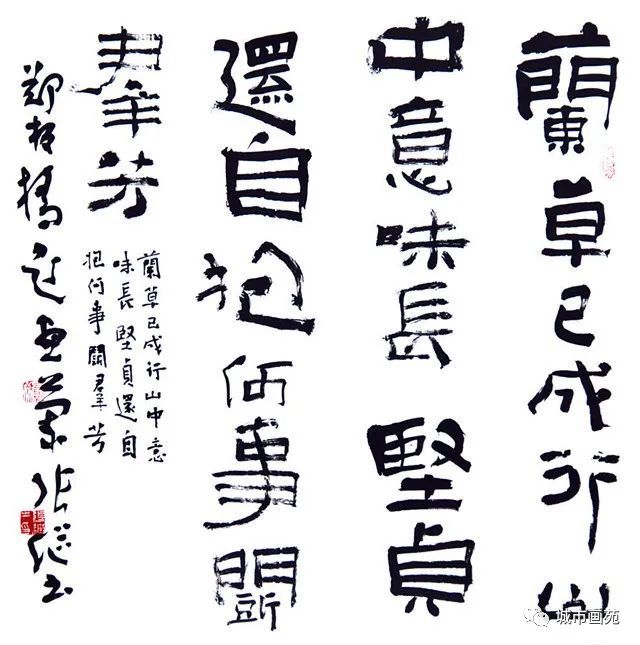 蘭草已成行山
中意味長堅貞
還自抱何事鬬
羣芳
蘭草已成行山中意
味長堅貞還自
抱何事鬬羣芳
鄭板橋題畫蘭張继书
城市画苑